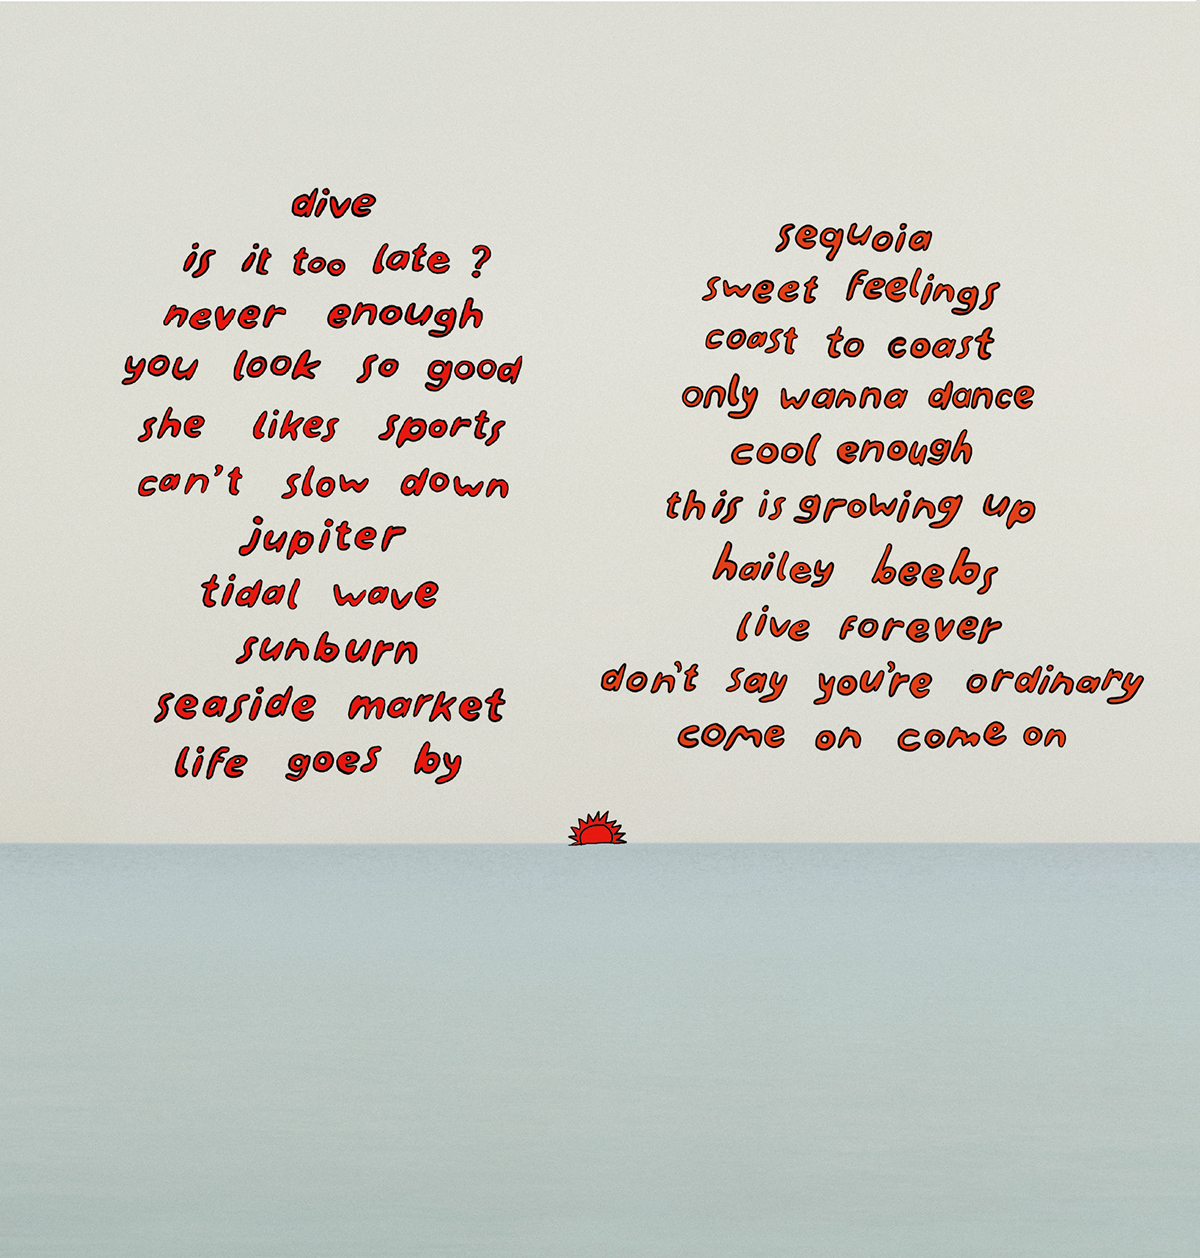 dive
is it too late ?
never enough
you look so good
she likes sports
can't slow down
jupiter
tidal wave
sunburn
seaside market
life goes by
sequoia
sweet feelings
coast to coast
only wanna dance
cool enough
this is growing up
hailey beebs
live forever
don't say you're ordinary
come on come on